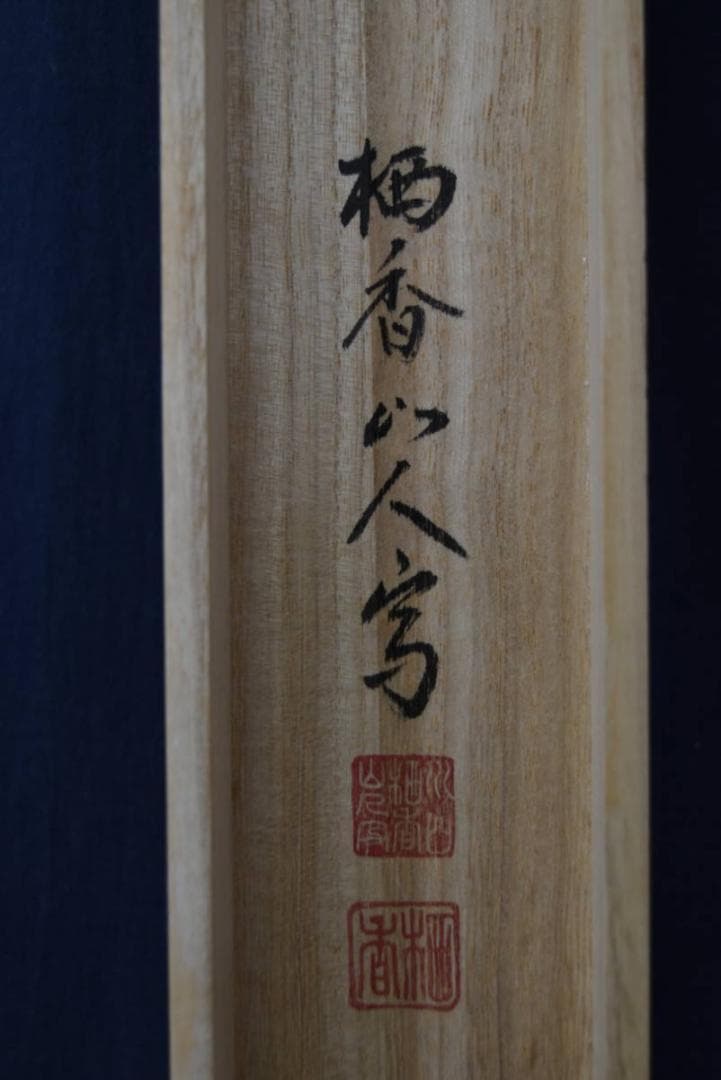 栖香山人写
栖香